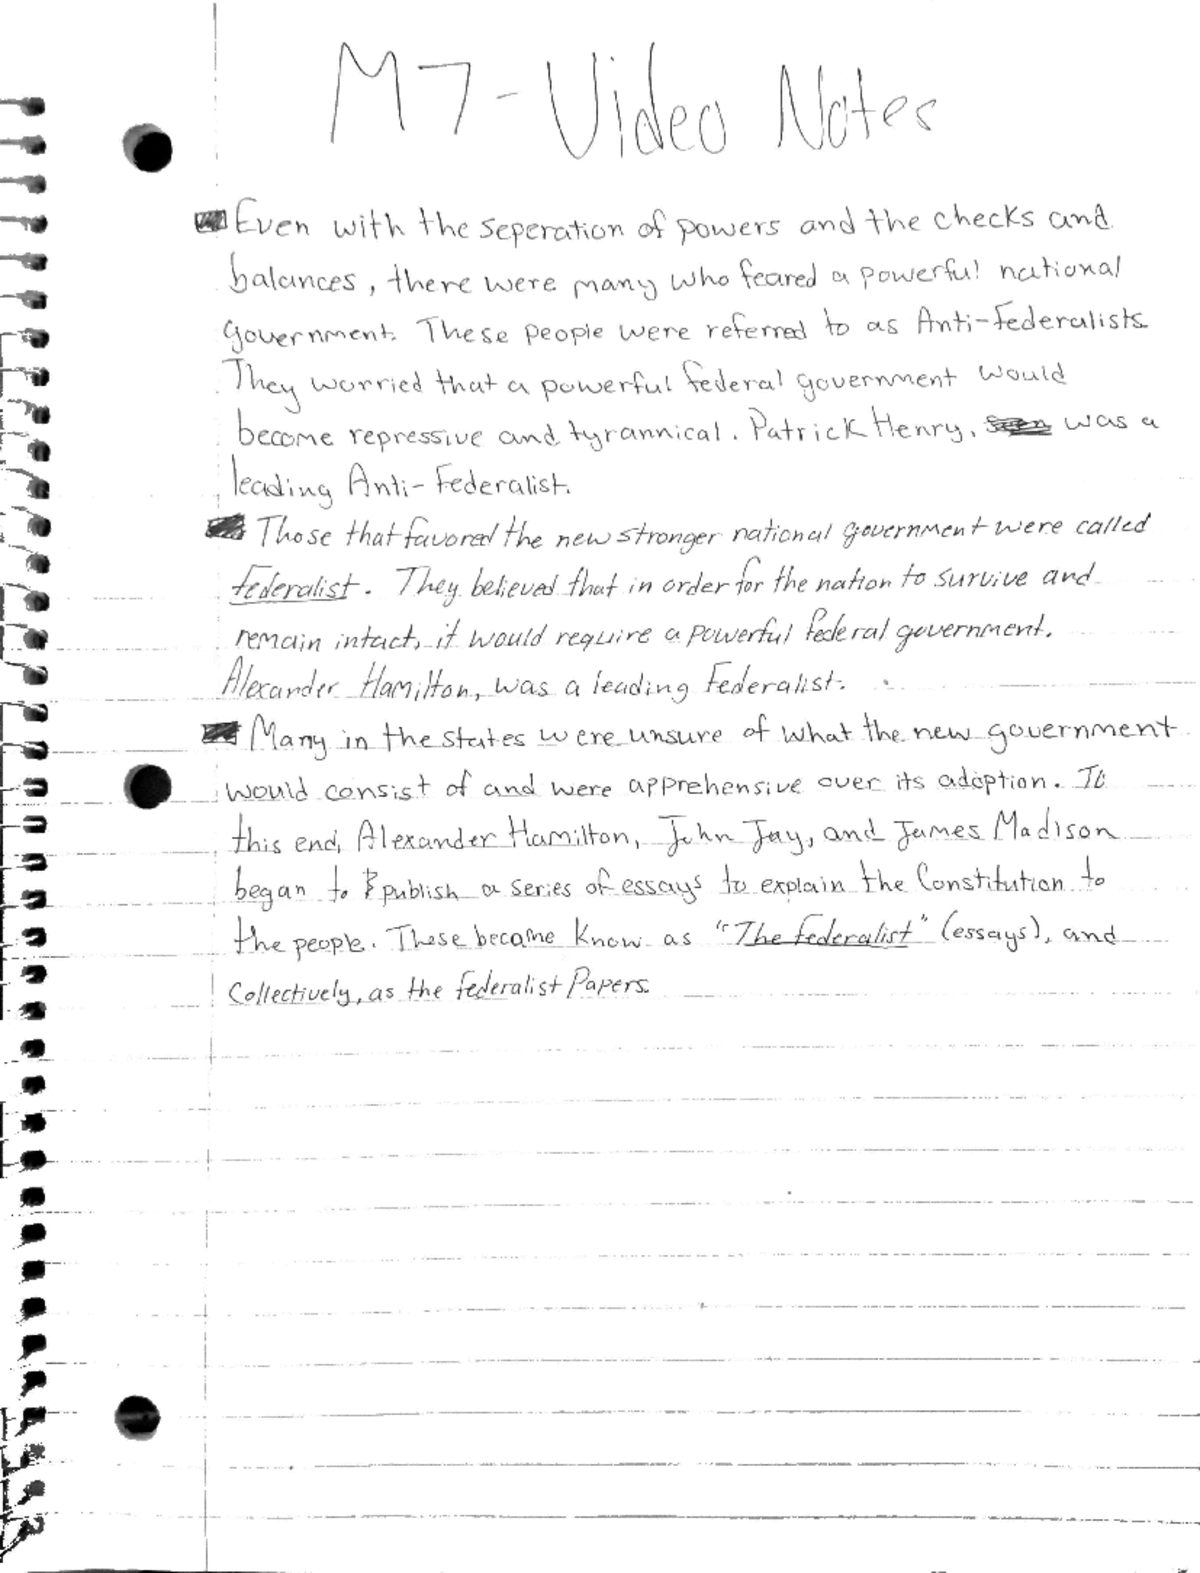 M7 - Video Notes
Even with the seperation of powers and the checks and
balances, there were many who feared a powerful national
government. These people were referred to as Anti-Federalists.
They worried that a powerful federal government would
become repressive and tyrannical. Patrick Henry, was a
leading Anti-Federalist.
Those that favored the new stronger national government were called
federalist. They believed that in order for the nation to survive and
remain intact, it would require a powerful federal government.
Alexander Hamilton, was a leading Federalist.
Many in the states were unsure of what the new government
would consist of and were apprehensive over its adoption. To
this end, Alexander Hamilton, John Jay, and James Madison
began to publish a series of essays to explain the Constitution to
the people. These became know as "The federalist" (essays), and
Collectively, as the federalist Papers.